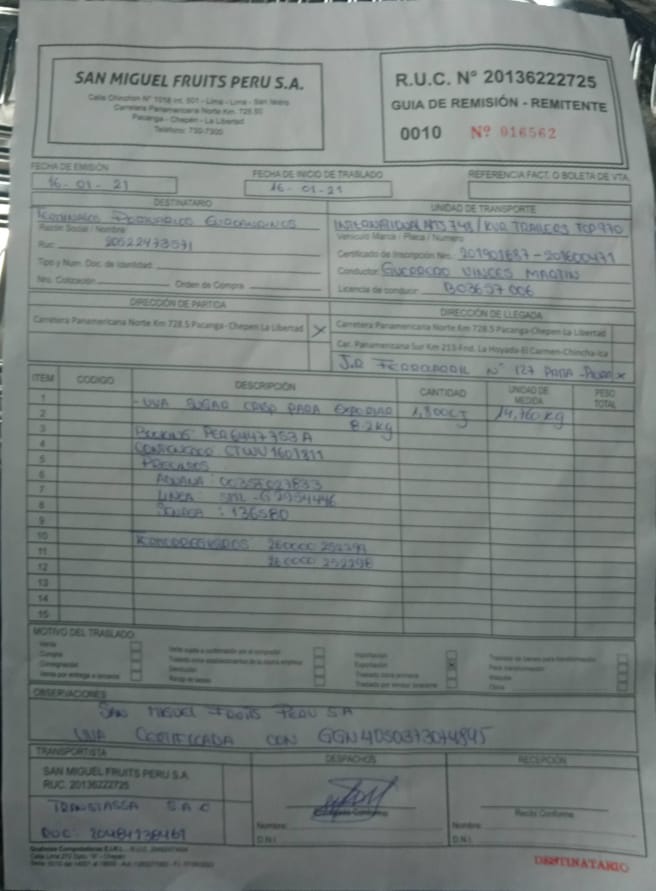 SAN MIGUEL FRUITS PERU S.A.
Calle Chinchon N° 1018 Int. 501 - Lima - Lima - San Isidro
Carretera Panamericana Norte Km. 728.50
Pacanga - Chepen - La Libertad
Teléfono: 730-7300
R.U.C. N° 20136222725
GUIA DE REMISIÓN - REMITENTE
0010 Nº 016562
FECHA DE EMISIÓN
16-01-21
FECHA DE INICIO DE TRASLADO
16-01-21
REFERENCIA FACT. O BOLETA DE VTA.
DESTINATARIO
TERMINALES PORTUARIOS EUROANDINOS
Razón Social / Nombre
Ruc. 20522473571
Tipo y Num. Doc. de Identidad:
Nro. Cotización Orden de Compra
UNIDAD DE TRANSPORTE
INTERNATIONAL / KVR TRAILERS TCP970
Vehículo Marca / Placa / Numero
Certificado de Inscripción Nro. 201901687-201600471
Conductor: GUERRERO VINCES MARTIN
Licencia de conducir: B03657006
DIRECCIÓN DE PARTIDA
Carretera Panamericana Norte Km 728.5 Pacanga- Chepen La Libertad X
DIRECCIÓN DE LLEGADA
Carretera Panamericana Norte Km 728.5 Pacanga-Chepen La Libertad
Car. Panamericana Sur Km 213-Fnd. La Hoyada-El Carmen-Chincha-Ica
J.R FERROCARRIL N° 127 PAITA - PIURA X
ITEM CODIGO DESCRIPCIÓN CANTIDAD UNIDAD DE MEDIDA PESO TOTAL
1 - UVA SUGAR CRISP PARA EXPORTAR 1,800CJ 14,760 Kg
2 8.2Kg
3 BOOKING PER6447753A
4 CONTENEDOR CTWU 1601811
5 PRECINTOS
6 ADUANA: 00357027833
7 LINEA: SML-G2954446
8 SENASA: 136580
9
10 TERMOREGISTROS 260000 252299
11 260000 252298
12
13
14
15
MOTIVO DEL TRASLADO
Venta
Compra
Consignación
Venta por entrega a terceros
Venta sujeta a confirmación por el comprador
Traslado entre establecimientos de la misma empresa
Devolución
Importación
Exportación X
Traslado zona primaria
Traslado por emisor itinerante
Traslado de bienes para transformación
Otros
OBSERVACIONES
SAN MIGUEL FRUITS PERU S.A
UVA CERTIFICADA CON GGN 4050373074845
TRANSPORTISTA
SAN MIGUEL FRUITS PERU S.A
RUC. 20136222725
TRANSTASSA S.A.C
RUC: 20484138461
DESPACHOS
Nombre:
D.N.I.
RECEPCIÓN
Recibí Conforme
Nombre:
D.N.I.
DESTINATARIO